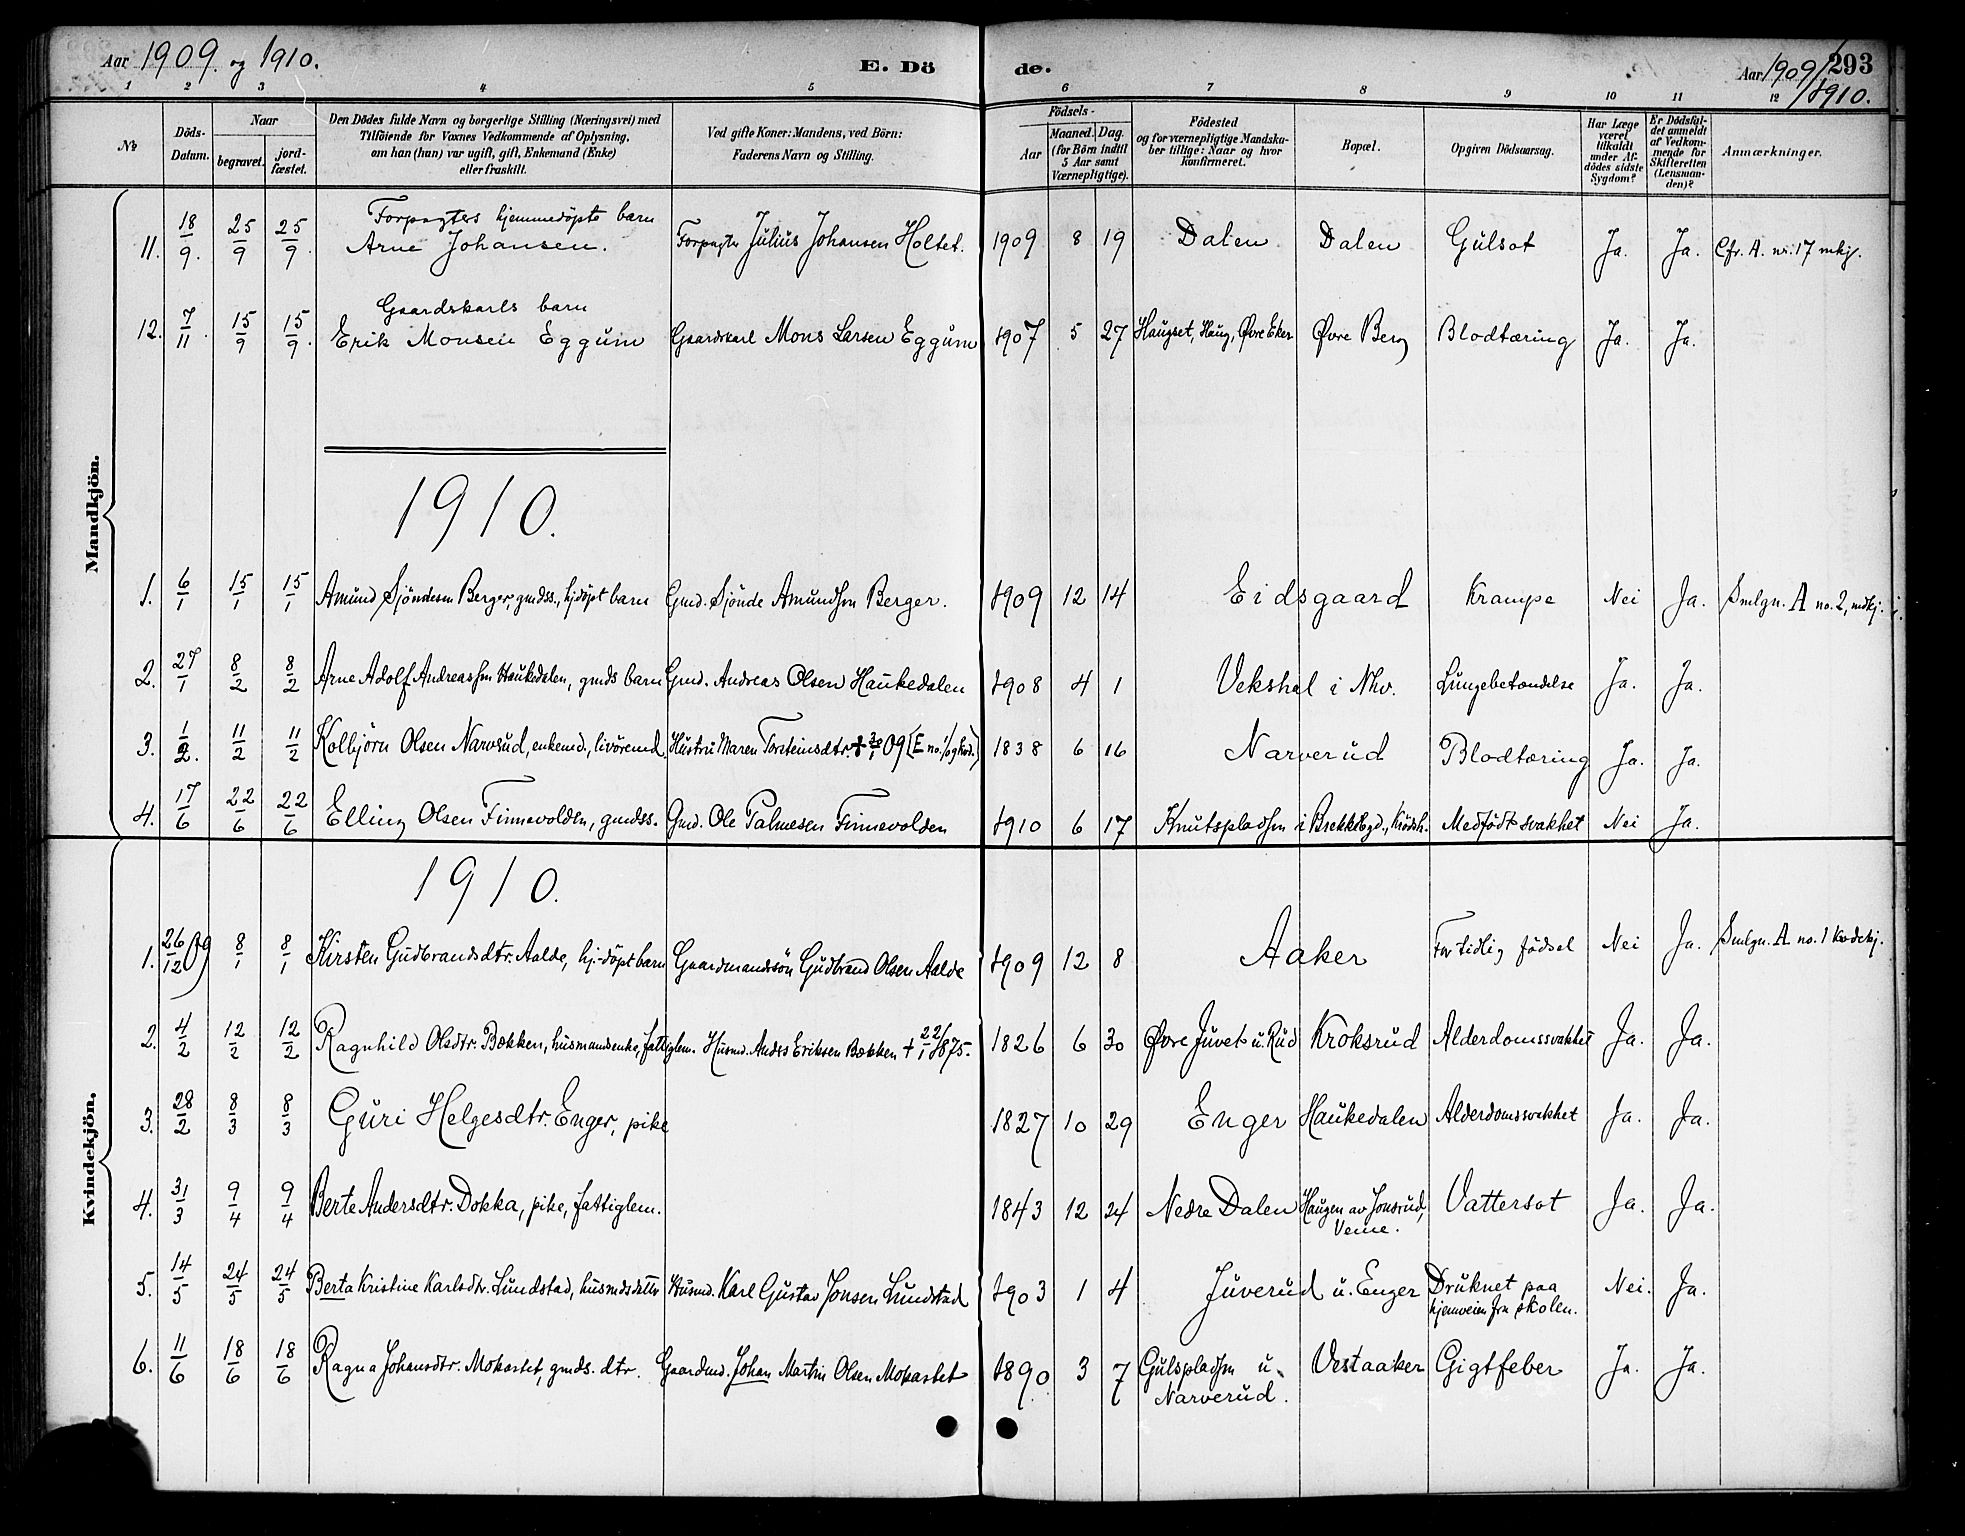 Aar 1909. og 1910.
E. Dö de.
Aar 1909/1910.
293
1 2 3 4 5 6 7 8 9 10 11 12
No
Döds-Datum.
Naar begravet. jordfæstet.
Den Dödes fulde Navn og borgerlige Stilling (Næringsvei) med Tilföiende for Voxnes Vedkommende af Oplysning, om han (hun) var ugift, gift, Enkemand (Enke) eller fraskilt.
Ved gifte Koner: Mandens, ved Börn: Faderens Navn og Stilling.
Födsels- Aar Maaned. Dag. (for Børn indtil 5 Aar samt Værnepligtige).
Födested og for værnepligtige Mandskaber tillige: Naar og hvor Konfirmeret.
Bopæl.
Opgiven Dödsaarsag.
Har Læge været tilkaldt under Afdødes sidste Sygdom?
Er Dödsfaldet anmeldt af Vedkommende for Skifteretten (Lensmanden)?
Anmærkninger.
Mandkjön.
11. 18/9. 25/9 25/9. Forpagters hjemmedöpte barn Arne Johansen. Forpagter Julius Johansen Holtet. 1909 8 19 Dalen Dalen Gulsot Ja. Ja. Cfr. A. nr. 17 mkj.
12. 7/11. 15/9 15/9. Gaardskarls barn Erik Monsen Eggum Gaardskarl Mons Larsen Eggum 1907 5 27 Haugset, Haug, Øvre Eker Øvre Berg Blodtæring Ja. Ja.
1910.
1. 6/1 15/1 15/1 Amund Sjöndesen Berger, gmdss., hjdöpt barn Gmd. Sjönde Amundsen Berger. 1909 12 14 Eidsgaard Krampe Nei Ja. Smlgn. A no. 2, mdkj.
2. 27/1 8/2 8/2 Arne Adolf Andreassen Haukedalen, gmds barn Gmd. Andreas Olsen Haukedalen 1908 4 1 Vekshal i Nhv. Lungebetændelse Ja. Ja.
3. 1/2. 11/2 11/2 Kolbjörn Olsen Narverud, enkemd., livöremd. Hustru Maren Torsteinsdtr. 1838 6 16 Narverud Blodtæring Ja. Ja.
4. 17/6 22/6 22/6 Elling Olsen Finnevolden, gmdss. Gmd. Ole Palmesen Finnevolden 1910 6 17 Knutspladsen i Brekkbygd., Krödsh. Medfödt svakhet Nei Ja.
Kvindekjön.
1910.
1. 26/12 09 8/1 8/1 Kirsten Gudbrandsdtr. Aalde, hj.-döpt barn Gaardmandssön Gudbrand Olsen Aalde 1909 12 8 Aaker For tidlig födsel Nei Ja. Smlgn. A no. 1 kvdekj.
2. 4/2 12/2 12/2 Ragnhild Olsdtr. Bækken, husmandsenke, fattiglem. Husmd. Anders Eriksen Bækken + 22/1 1875. 1826 6 30 Øvre Juvet u. Rud Kroksrud Alderdomssvakhet Ja. Ja.
3. 28/2 8/3 8/3 Guri Helgesdtr. Enger, pike 1827 10 29 Enger Haukedalen Alderdomssvakhet Ja. Ja.
4. 31/3 9/4 9/4 Berte Andersdtr. Dokka, pike, fattiglem. 1843 12 24 Nedre Dalen Haugen av Jonsrud, Veme. Vattersot Ja. Ja.
5. 14/5 24/5 24/5 Berta Kristine Karlsdtr. Lundstad, husmdsdatter Husmd. Karl Gustav Jonsen Lundstad 1903 1 4 Juverud u. Enger Druknet paa hjemveien fra skolen. Nei. Ja.
6. 11/6 18/6 18/6 Ragna Johansdtr. Mokastet, gmds. dtr. Gaardmd. Johan Martin Olsen Mokastet 1890 3 7 Gulspladsen u. Narverud. Vestaaker Gigtfeber Ja. Ja.